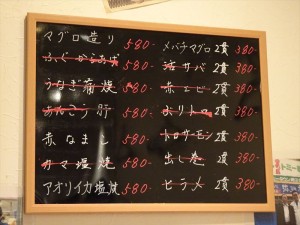 マグロ造り 580-
ふぐからあげ 580-
うなぎ蒲焼 580-
あんこう肝 580-
赤なまこ 580-
カマ塩焼 580-
アオリイカ塩焼 580-
メバチマグロ 2貫 380-
活サバ 2貫 380-
赤エビ 2貫 380-
2貫 380-
トロサーモン 2貫 380-
出し巻 2貫 380-
ヒラメ 2貫 380-